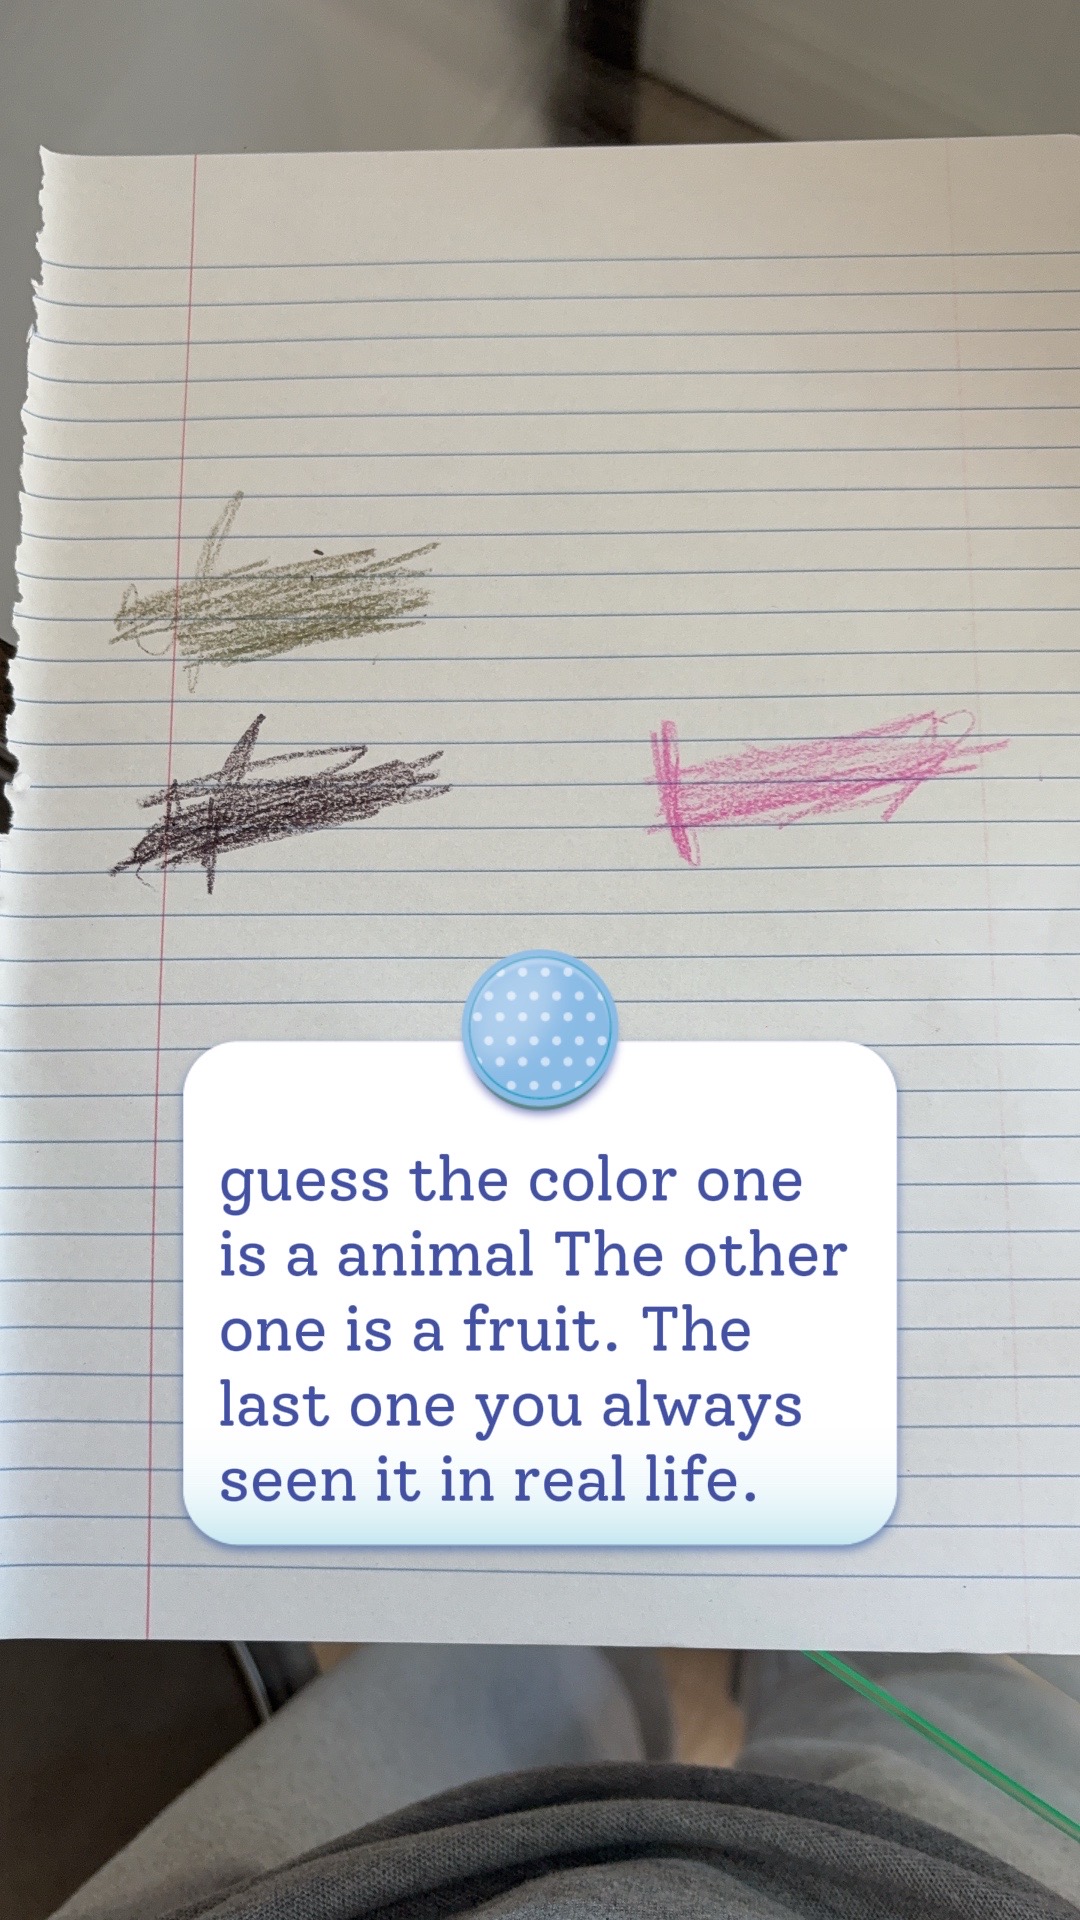 guess the color one
is a animal The other
one is a fruit. The
last one you always
seen it in real life.